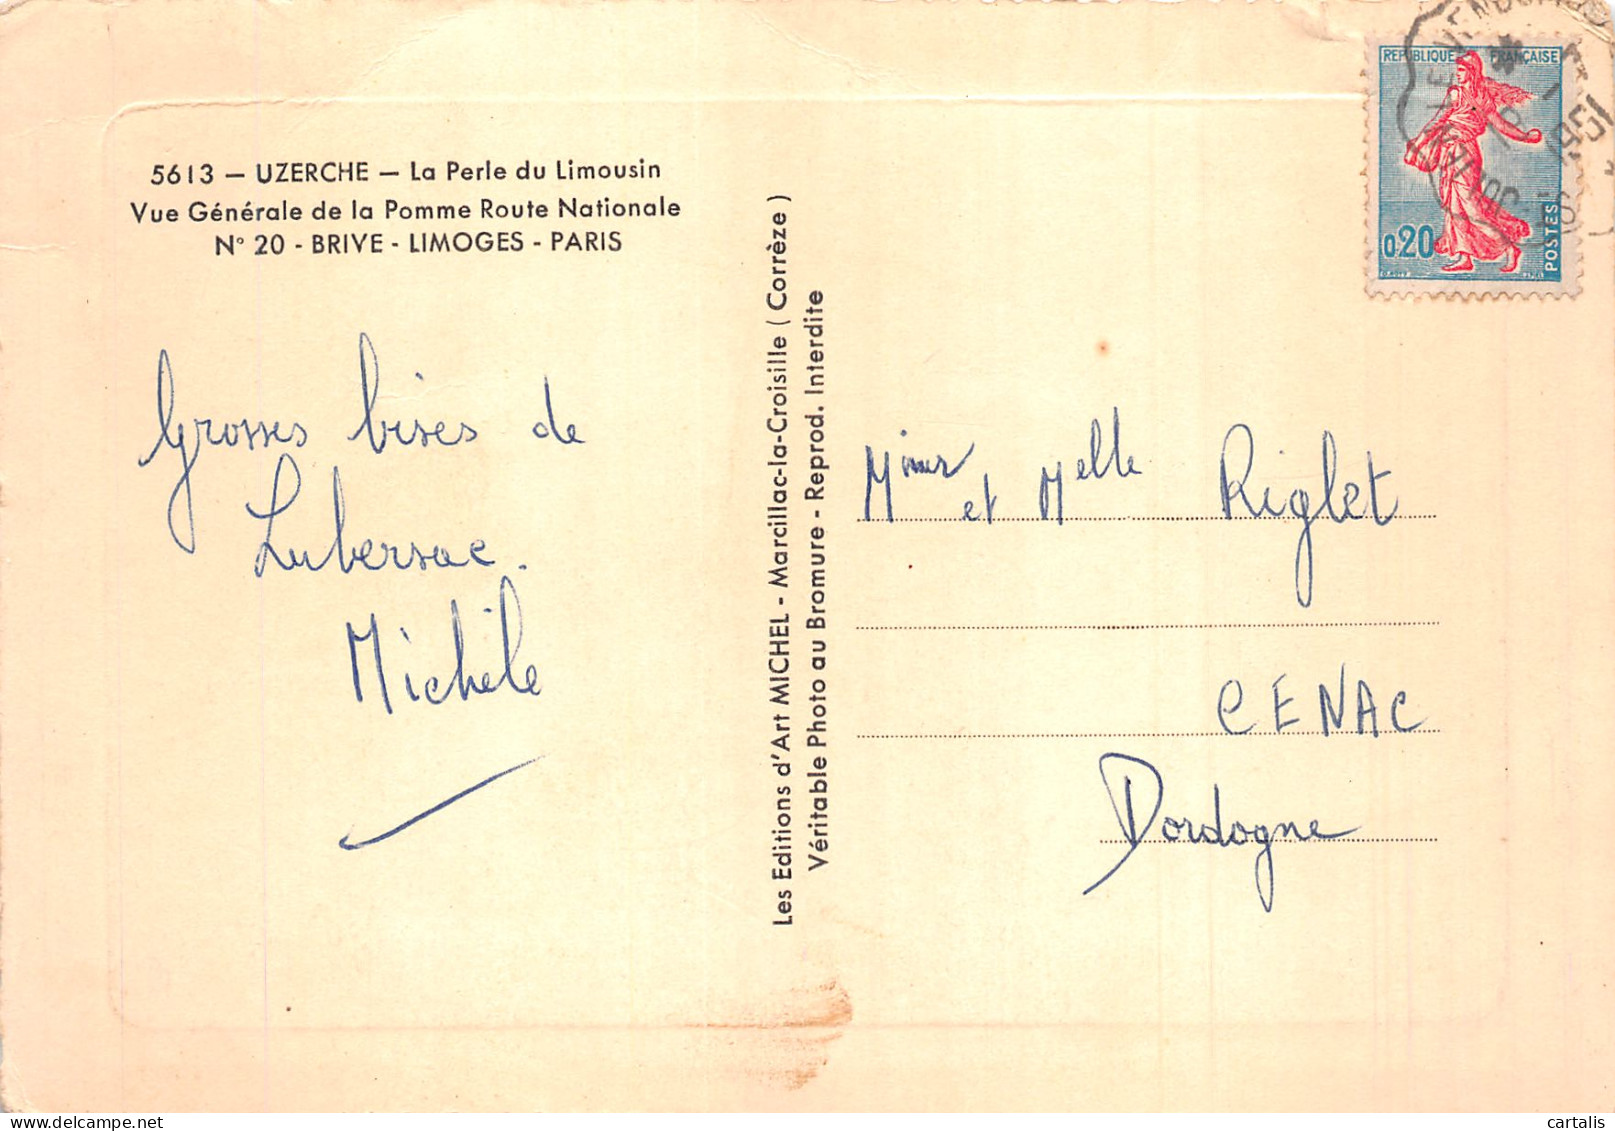 5613 — UZERCHE — La Perle du Limousin
Vue Générale de la Pomme Route Nationale
N° 20 - BRIVE - LIMOGES - PARIS
Grosses bises de
Lubersac.
Michèle
Les Editions d'Art MICHEL - Marcillac-la-Croisille ( Corrèze )
Véritable Photo au Bromure - Reprod. Interdite
REPUBLIQUE FRANÇAISE
0.20
POSTES
et Melle Riglet
CENAC
Dordogne
delcampe.net
cartalis